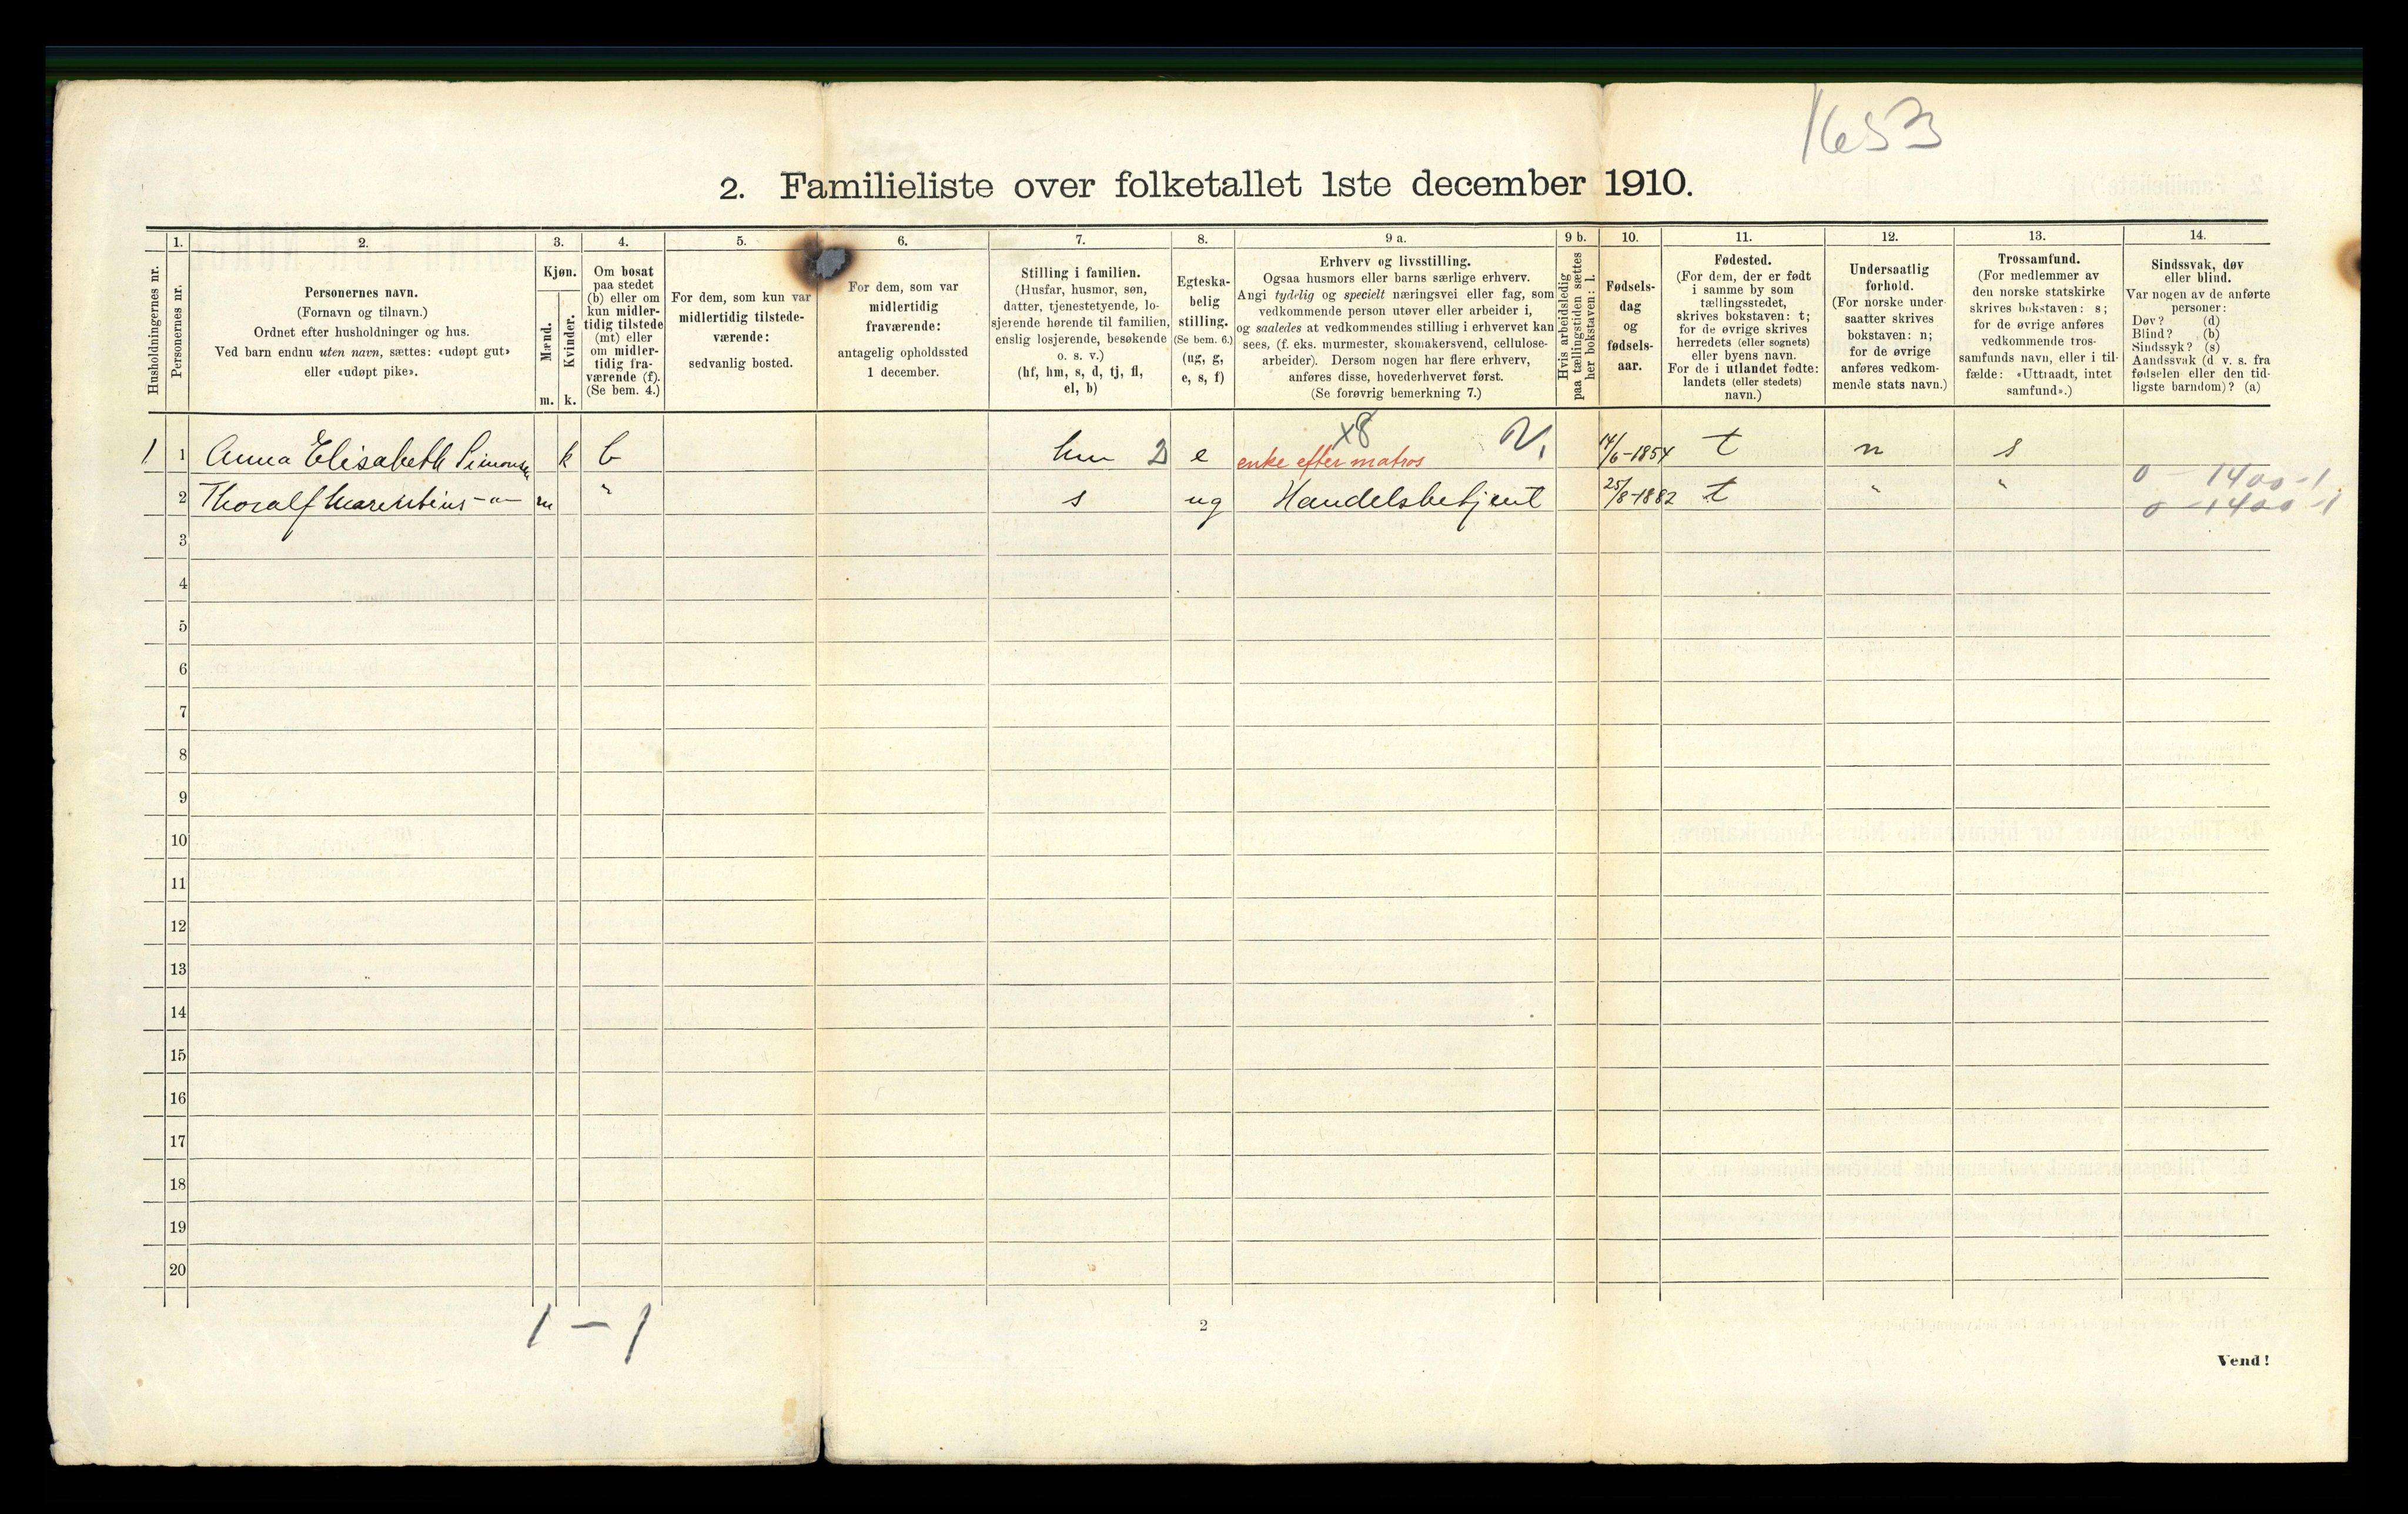 1653
2. Familieliste over folketallet 1ste december 1910.
Husholdningernes nr.
1.
Personernes nr.
2.
Personernes navn.
(Fornavn og tilnavn.)
Ordnet efter husholdninger og hus.
Ved barn endnu uten navn, sættes: «udøpt gut»
eller «udøpt pike».
3.
Kjøn.
Mænd.
Kvinder.
m. k.
4.
Om bosat
paa stedet
(b) eller om
kun midler-
tidig tilstede
(mt) eller
om midler-
tidig fra-
værende (f).
(Se bem. 4.)
5.
For dem, som kun var
midlertidig tilstede-
værende:
sedvanlig bosted.
6.
For dem, som var
midlertidig
fraværende:
antagelig opholdssted
1 december.
7.
Stilling i familien.
(Husfar, husmor, søn,
datter, tjenestetyende, lo-
sjerende hørende til familien,
enslig losjerende, besøkende
o. s. v.)
(hf, hm, s, d, tj, fl,
el, b)
8.
Egteska-
belig
stilling.
(Se bem. 6.)
(ug, g,
e, s, f)
9 a.
Erhverv og livsstilling.
Ogsaa husmors eller barns særlige erhverv.
Angi tydelig og specielt næringsvei eller fag, som
vedkommende person utøver eller arbeider i,
og saaledes at vedkommendes stilling i erhvervet kan
sees, (f. eks. murmester, skomakersvend, cellulose-
arbeider). Dersom nogen har flere erhverv,
anføres disse, hovederhvervet først.
(Se forøvrig bemerkning 7.)
9 b.
Hvis arbeidsledig
paa tællingstiden sættes
her bokstaven: l.
10.
Fødsels-
dag
og
fødsels-
aar.
11.
Fødested.
(For dem, der er født
i samme by som
tællingsstedet,
skrives bokstaven: t;
for de øvrige skrives
herredets (eller sognets)
eller byens navn.
For de i utlandet fødte:
landets (eller stedets)
navn.)
12.
Undersaatlig
forhold.
(For norske under-
saatter skrives
bokstaven: n;
for de øvrige
anføres vedkom-
mende stats navn.)
13.
Trossamfund.
(For medlemmer av
den norske statskirke
skrives bokstaven: s;
for de øvrige anføres
vedkommende tros-
samfunds navn, eller i til-
fælde: «Uttraadt, intet
samfund».)
14.
Sindssvak, døv
eller blind.
Var nogen av de anførte
personer:
Døv? (d)
Blind? (b)
Sindssyk? (s)
Aandssvak (d. v. s. fra
fødselen eller den tid-
ligste barndom)? (a)
1 1 Anna Elisabeth Simonsen k b hm e enke efter matros x8 14/6-1854 t n s 0 1400-1
2 Thoralf Marentius -"- m " s ug Handelsbetjent 25/8-1882 t " " 0 1400-1
3
4
5
6
7
8
9
10
11
12
13
14
15
16
17
18
19
20
1 - 1
2
Vend!